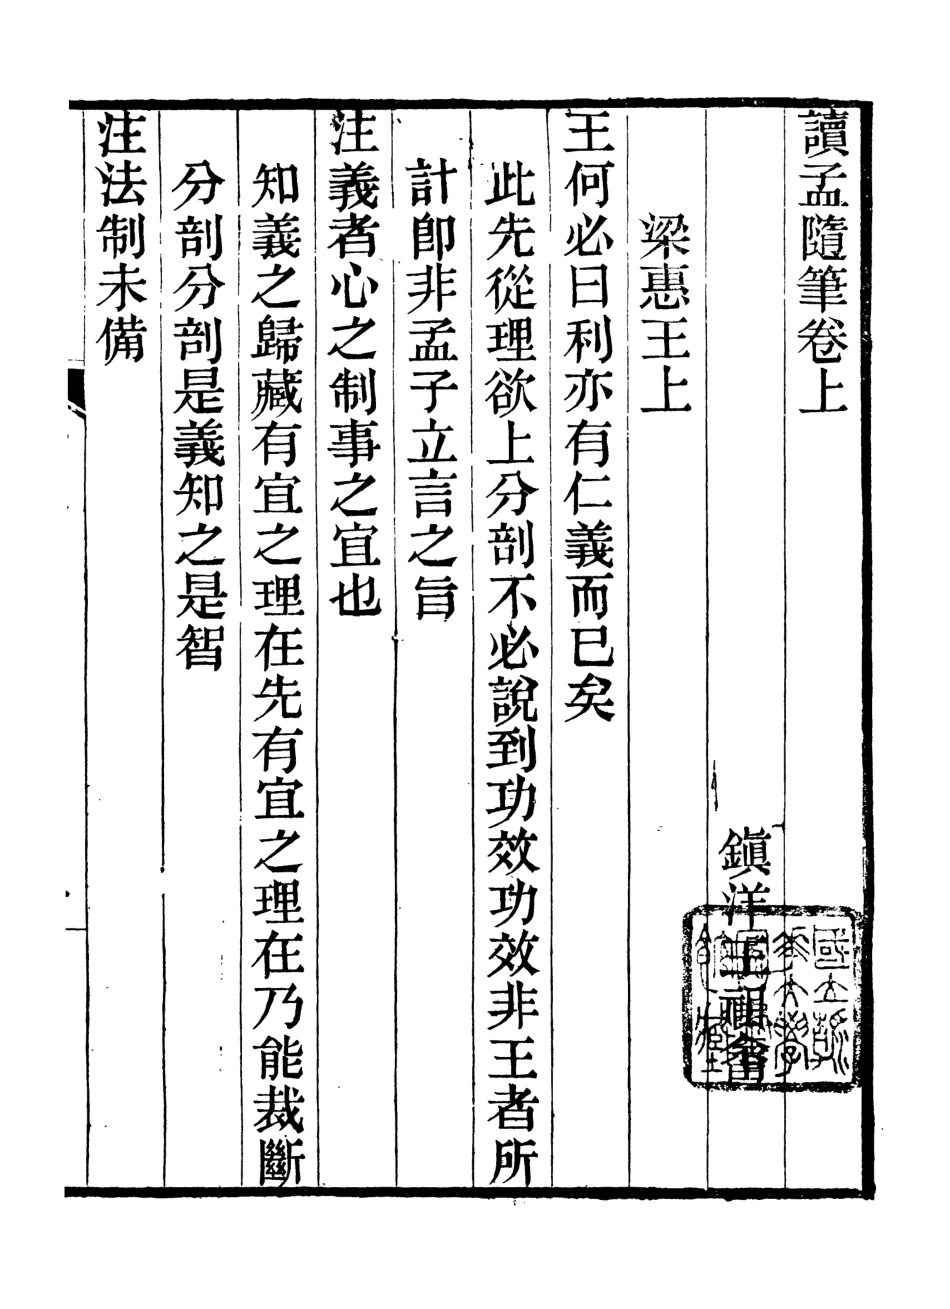 讀孟隨筆卷上
鎭洋王祖畬
梁惠王上
王何必曰利亦有仁義而已矣
此先從理欲上分剖不必說到功效功效非王者所
計卽非孟子立言之旨
注義者心之制事之宜也
知義之歸藏有宜之理在先有宜之理在乃能裁斷
分剖分剖是義知之是智
注法制未備